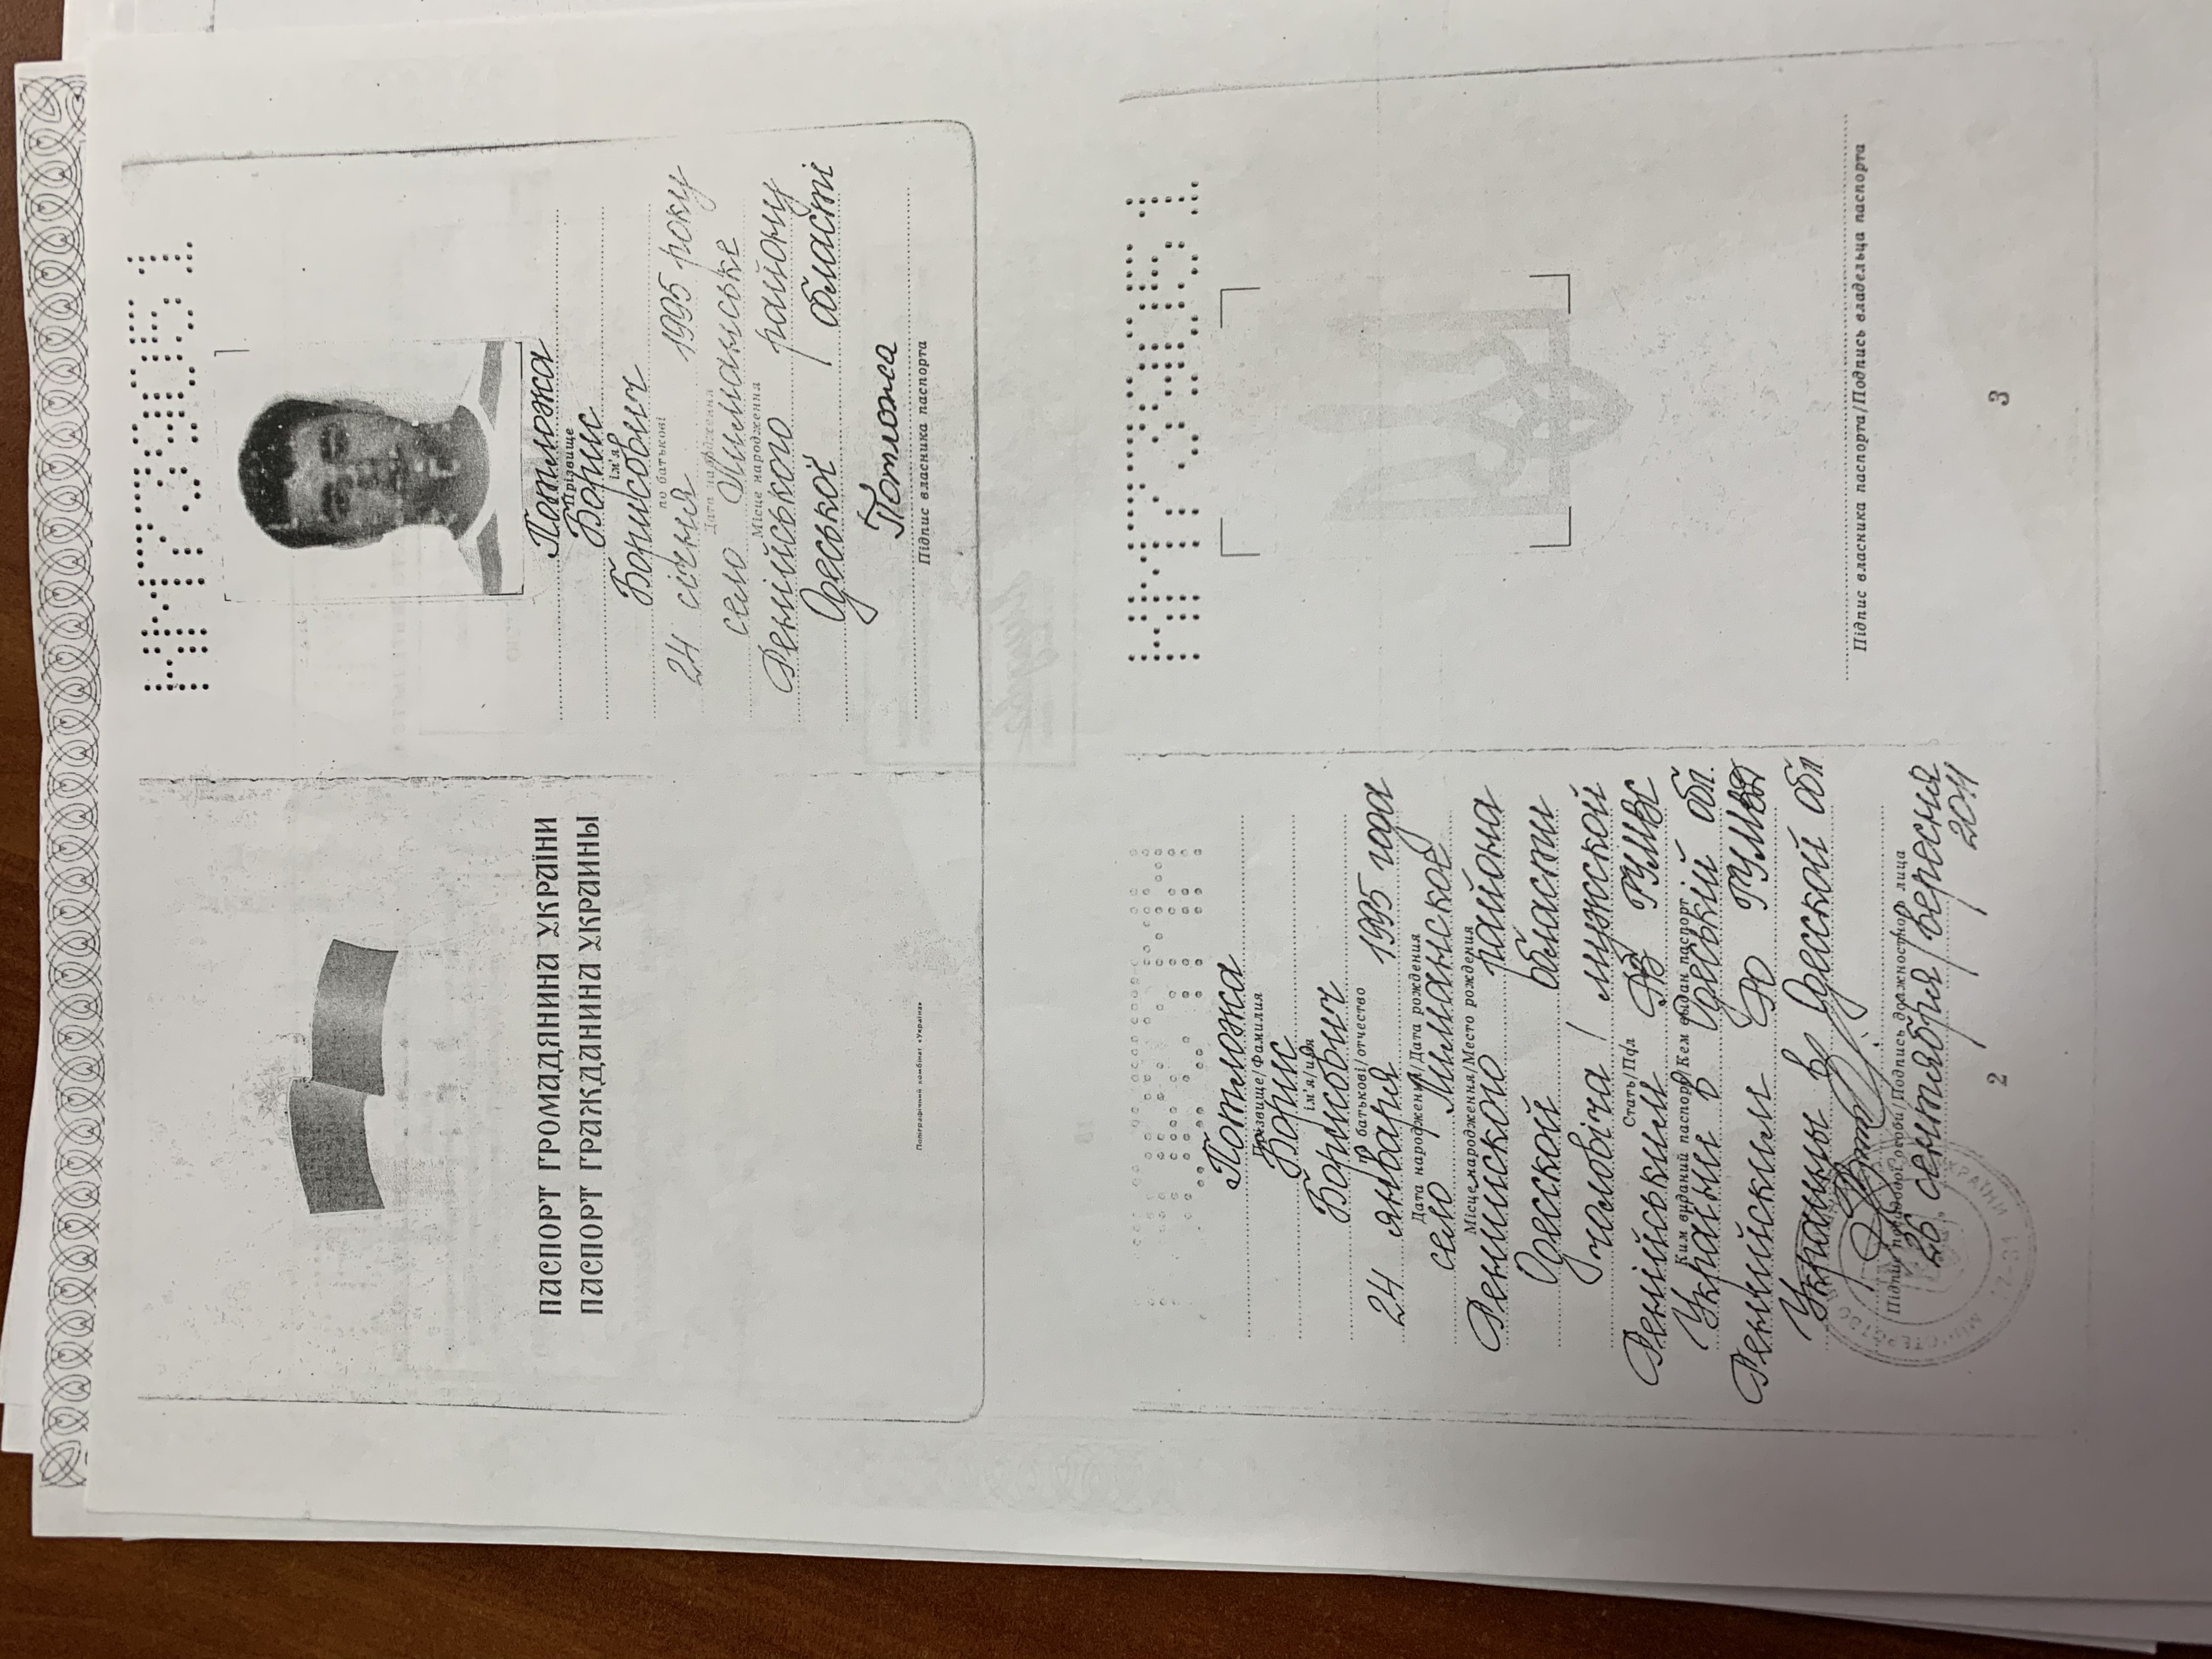 НМ739051
ПАСПОРТ ГРОМАДЯНИНА УКРАЇНИ
ПАСПОРТ ГРАЖДАНИНА УКРАИНЫ
Поліграфічний комбінат «Україна»
Потложа
Прізвище
Борис
ім'я
Борисович
по батькові
24 січня 1995 року
Дата народження
село Лиманське
Місце народження
Ренійського району
Одеської області
Потложа
Підпис власника паспорта
Потложа
Прізвище/Фамилия
Борис
ім'я/имя
Борисович
по батькові/отчество
24 января 1995 года
Дата народження/Дата рождения
село Лиманское
Місце народження/Место рождения
Ренийского района
Одесской области
чоловіча / мужской
Стать/Пол
Ренійським РВ ГУМВС
Ким виданий паспорт/Кем выдан паспорт
України в Одеській обл.
Ренийским РО ГУМВД
Украины в Одесской обл
Підпис посадової особи/Подпись должностного лица
26 сентября/вересня
2011
2
НМ739051
Підпис власника паспорта/Подпись владельца паспорта
3